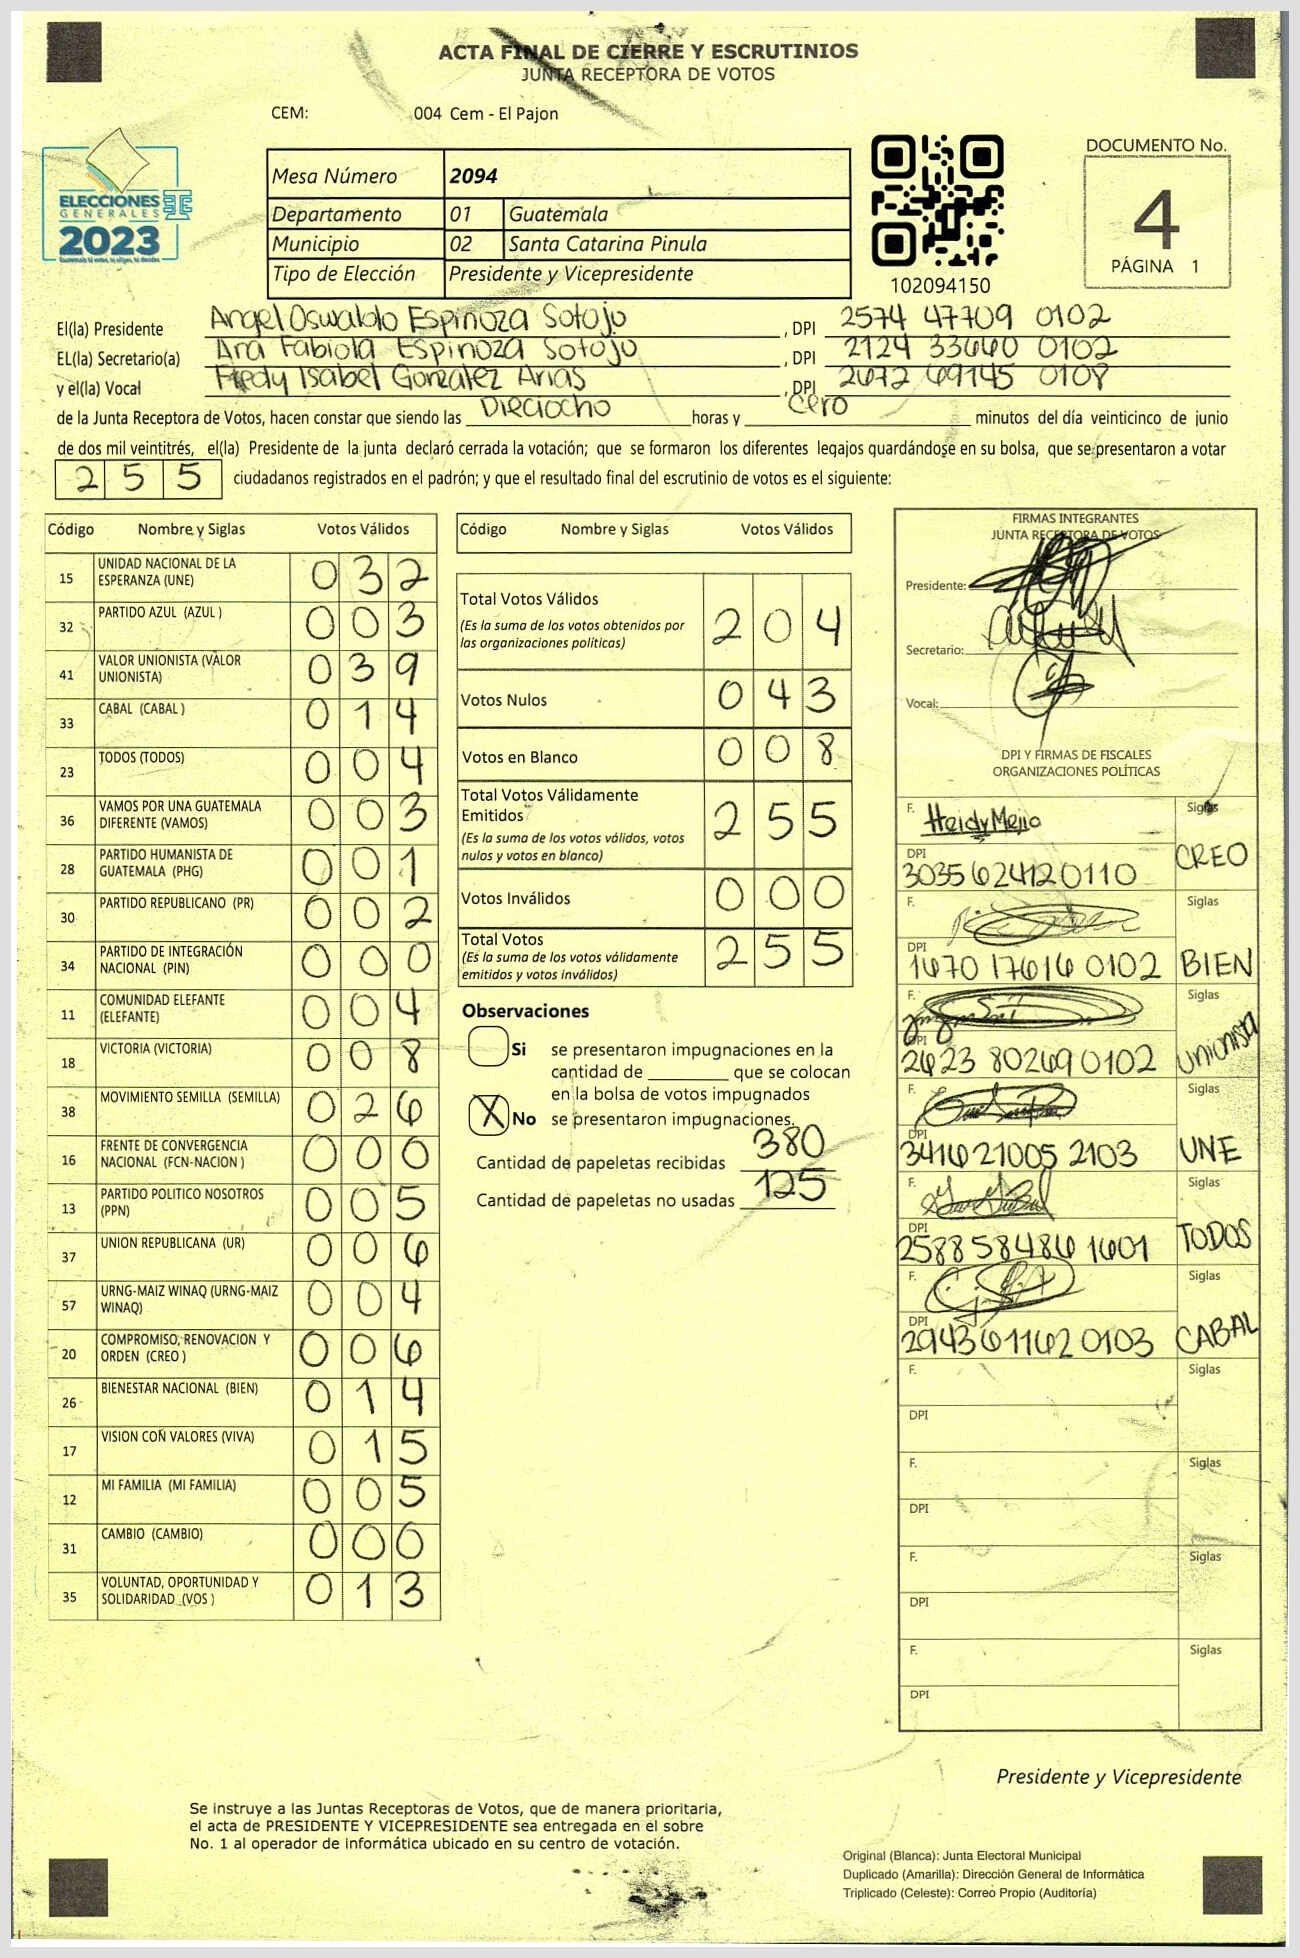 ACTA FINAL DE CIERRE Y ESCRUTINIOS
JUNTA RECEPTORA DE VOTOS
CEM: 004 Cem - El Pajon
ELECCIONES
GENERALES
2023
Mesa Número 2094
Departamento 01 Guatemala
Municipio 02 Santa Catarina Pinula
Tipo de Elección Presidente y Vicepresidente
102094150
DOCUMENTO No.
4
PÁGINA 1
El(la) Presidente Angel Oswaldo Espinoza Sotojo , DPI 2574 47709 0102
EL(la) Secretario(a) Ana Fabiola Espinoza Sotojo , DPI 2124 33660 0102
y el(la) Vocal Fredy Isabel Gonzalez Arias , DPI 2672 69145 0108
de la Junta Receptora de Votos, hacen constar que siendo las Dieciocho horas y Cero minutos del día veinticinco de junio
de dos mil veintitrés, el(la) Presidente de la junta declaró cerrada la votación; que se formaron los diferentes legajos guardándose en su bolsa, que se presentaron a votar
255 ciudadanos registrados en el padrón; y que el resultado final del escrutinio de votos es el siguiente:
Código Nombre y Siglas Votos Válidos
15 UNIDAD NACIONAL DE LA ESPERANZA (UNE) 032
32 PARTIDO AZUL (AZUL ) 003
41 VALOR UNIONISTA (VALOR UNIONISTA) 039
33 CABAL (CABAL ) 014
23 TODOS (TODOS) 004
36 VAMOS POR UNA GUATEMALA DIFERENTE (VAMOS) 003
28 PARTIDO HUMANISTA DE GUATEMALA (PHG) 001
30 PARTIDO REPUBLICANO (PR) 002
34 PARTIDO DE INTEGRACIÓN NACIONAL (PIN) 000
11 COMUNIDAD ELEFANTE (ELEFANTE) 004
18 VICTORIA (VICTORIA) 008
38 MOVIMIENTO SEMILLA (SEMILLA) 026
16 FRENTE DE CONVERGENCIA NACIONAL (FCN-NACION ) 000
13 PARTIDO POLITICO NOSOTROS (PPN) 005
37 UNION REPUBLICANA (UR) 006
57 URNG-MAIZ WINAQ (URNG-MAIZ WINAQ) 004
20 COMPROMISO, RENOVACION Y ORDEN (CREO ) 006
26 BIENESTAR NACIONAL (BIEN) 014
17 VISION CON VALORES (VIVA) 015
12 MI FAMILIA (MI FAMILIA) 005
31 CAMBIO (CAMBIO) 000
35 VOLUNTAD, OPORTUNIDAD Y SOLIDARIDAD (VOS ) 013
Código Nombre y Siglas Votos Válidos
Total Votos Válidos 204
(Es la suma de los votos obtenidos por
las organizaciones políticas)
Votos Nulos 043
Votos en Blanco 008
Total Votos Válidamente
Emitidos 255
(Es la suma de los votos válidos, votos
nulos y votos en blanco)
Votos Inválidos 000
Total Votos 255
(Es la suma de los votos válidamente
emitidos y votos inválidos)
Observaciones
Si se presentaron impugnaciones en la
cantidad de ________ que se colocan
en la bolsa de votos impugnados
X No se presentaron impugnaciones.
Cantidad de papeletas recibidas 380
Cantidad de papeletas no usadas 125
FIRMAS INTEGRANTES
JUNTA RECEPTORA DE VOTOS
Presidente:
Secretario:
Vocal:
DPI Y FIRMAS DE FISCALES
ORGANIZACIONES POLÍTICAS
F. Heidy Mejia Siglas
DPI 3035624120110 CREO
F. Siglas
DPI 1670 17616 0102 BIEN
F. Siglas
DPI 2623 80269 0102 Unionista
F. Siglas
DPI 3416 21005 2103 UNE
F. Siglas
DPI 2588 58486 1601 TODOS
F. Siglas
DPI 2943 61162 0103 CABAL
F. Siglas
DPI
F. Siglas
DPI
F. Siglas
DPI
F. Siglas
DPI
Presidente y Vicepresidente
Se instruye a las Juntas Receptoras de Votos, que de manera prioritaria,
el acta de PRESIDENTE Y VICEPRESIDENTE sea entregada en el sobre
No. 1 al operador de informática ubicado en su centro de votación.
Original (Blanca): Junta Electoral Municipal
Duplicado (Amarilla): Dirección General de Informática
Triplicado (Celeste): Correo Propio (Auditoría)